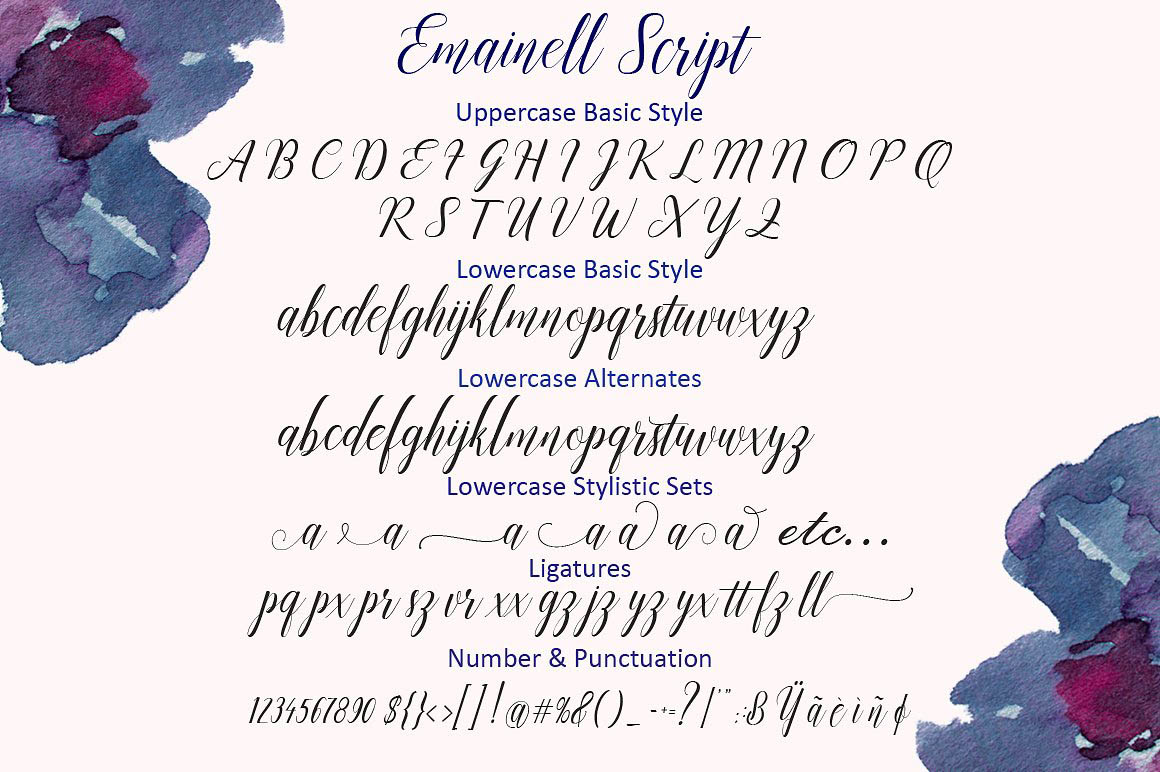 Emainell Script
Uppercase Basic Style
A B C D E F G H I J K L M N O P Q
R S T U V W X Y Z
Lowercase Basic Style
abcdefghijklmnopqrstuvwxyz
Lowercase Alternates
abcdefghijklmnopqrstuvwxyz
Lowercase Stylistic Sets
a a a a a a a etc...
Ligatures
pq px pr sz vr xx gz jz yz yx tt fz ll
Number & Punctuation
1234567890 ${}<>[]!@#%&()_-+=?/'";:ß Ÿ ã è ì ñ ¢